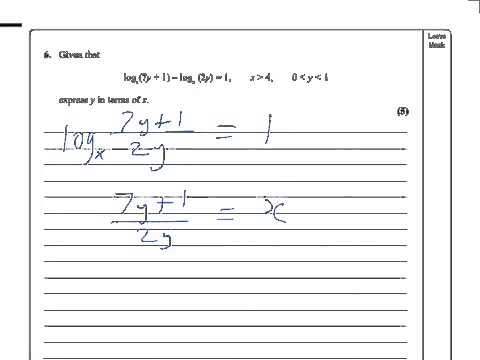 Leave
blank
6. Given that
logₓ(7y + 1) – logₓ(2y) = 1, x > 4, 0 < y < 1
express y in terms of x.
(5)
logₓ (7y+1)/(2y) = 1
(7y+1)/(2y) = x